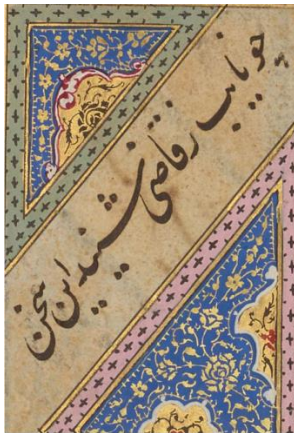 چو نایب ز قاضی شنید این سخن